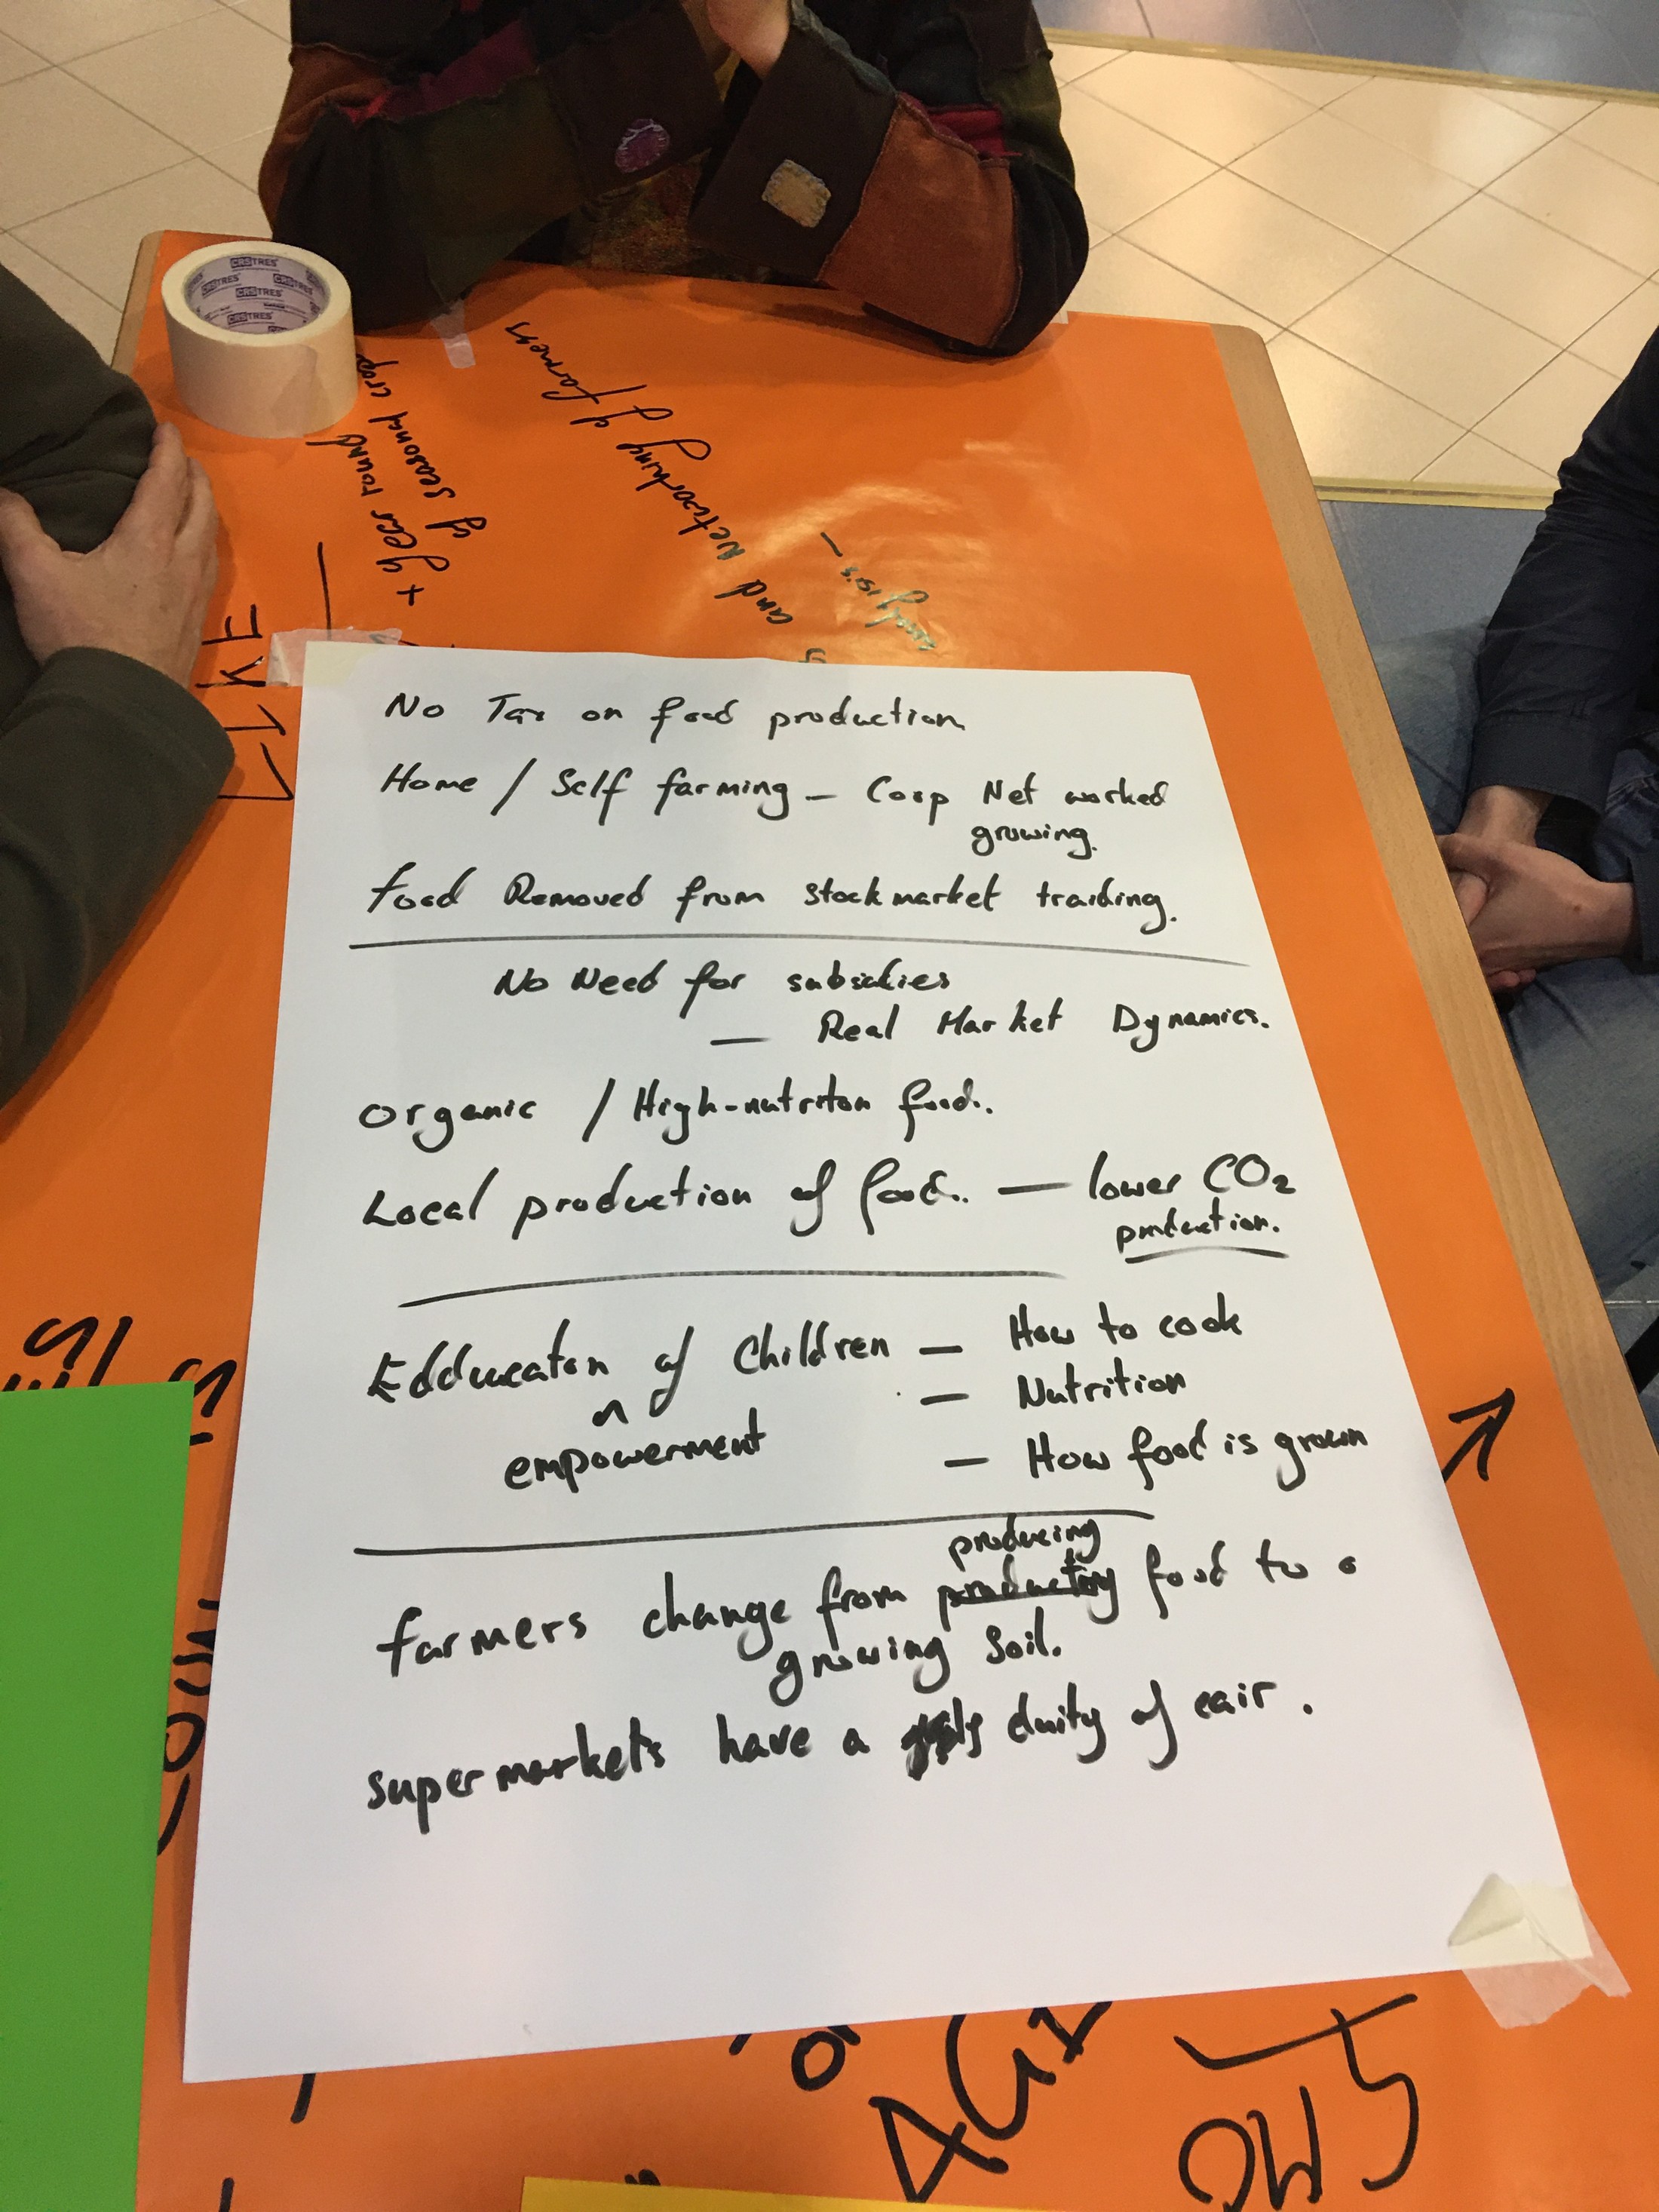 CRSTRES
CRSTRES
CRSTRES
CRSTRES
CRSTRES
+ year round
of seasonal crop
and Networking
of farmers
analysis -
LIKE
No Tax on food production
Home / Self farming - Coop Net worked
growing.
food Removed from stockmarket traiding.
No Need for subsidies
- Real Market Dynamics.
Organic / High-nutriton food..
Local production of food.. - lower CO2
production.
Edducaton of Children - How to cook
^
empowerment
- Nutrition
- How food is grown
producing
farmers change from food to a
growing Soil.
supermarkets have a duity of cair.